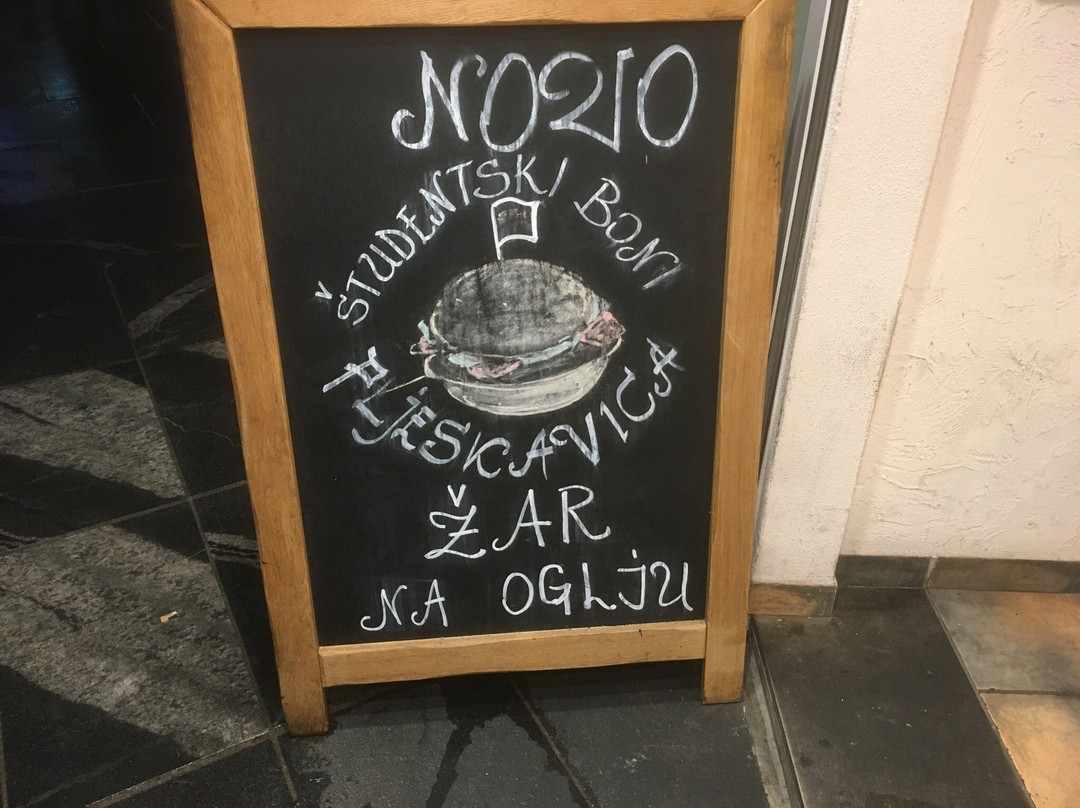 NOVO
ŠTUDENTSKI BONI
PLJESKAVICA
ŽAR
NA OGLJU